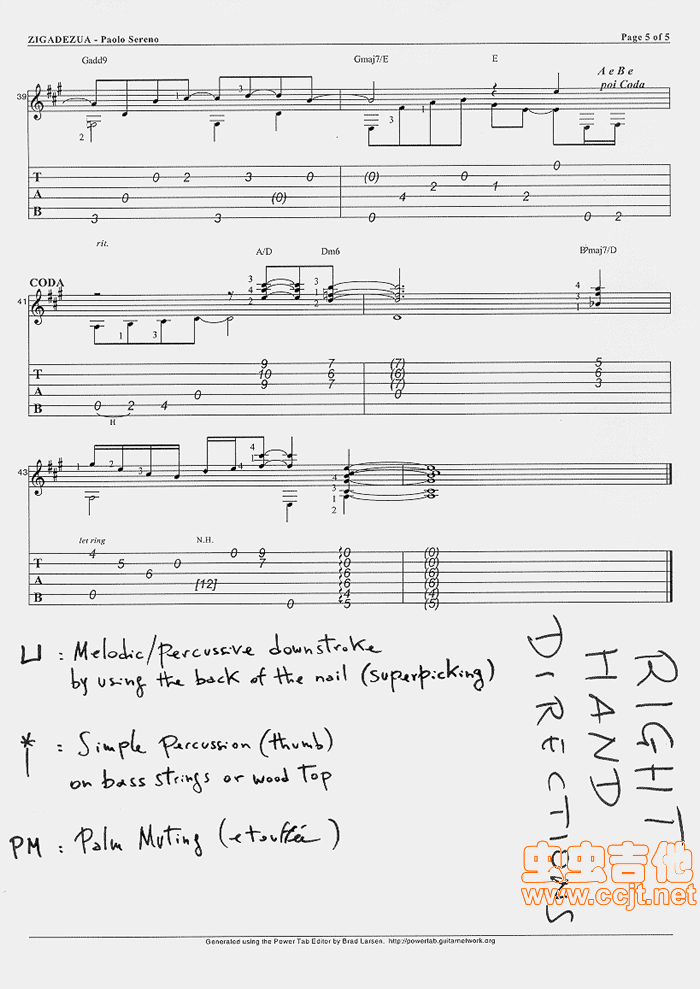 ZIGADEZUA - Paolo Sereno Page 5 of 5
Gadd9 Gmaj7/E E A e B e
poi Coda
39
1 3
2
T 0 2 3 0 (0) 2 0 1 0
A 0 (0) 4 2
B 3 3 0 0 2
rit. A/D Dm6 B♭maj7/D
CODA
41
T 9 7 (7) 5
10 6 (6) 6
A 9 7 (7) 3
0 0
B 0 2 4
H
43
let ring N.H.
T 4 0 9 0 (0)
5 0 7 0 (0)
A 6 6 (6)
0 [12] 6 (6)
B 4 (4)
0 5 (5)
⊔ : Melodic/percussive downstroke
by using the back of the nail (superpicking)
* : Simple Percussion (thumb)
on bass strings or wood top
PM : Palm Muting (etouffée)
RIGHT
HAND
DIRECTIONS
虫虫吉他
www.ccjt.net
Generated using the Power Tab Editor by Brad Larsen. http://powertab.guitarnetwork.org